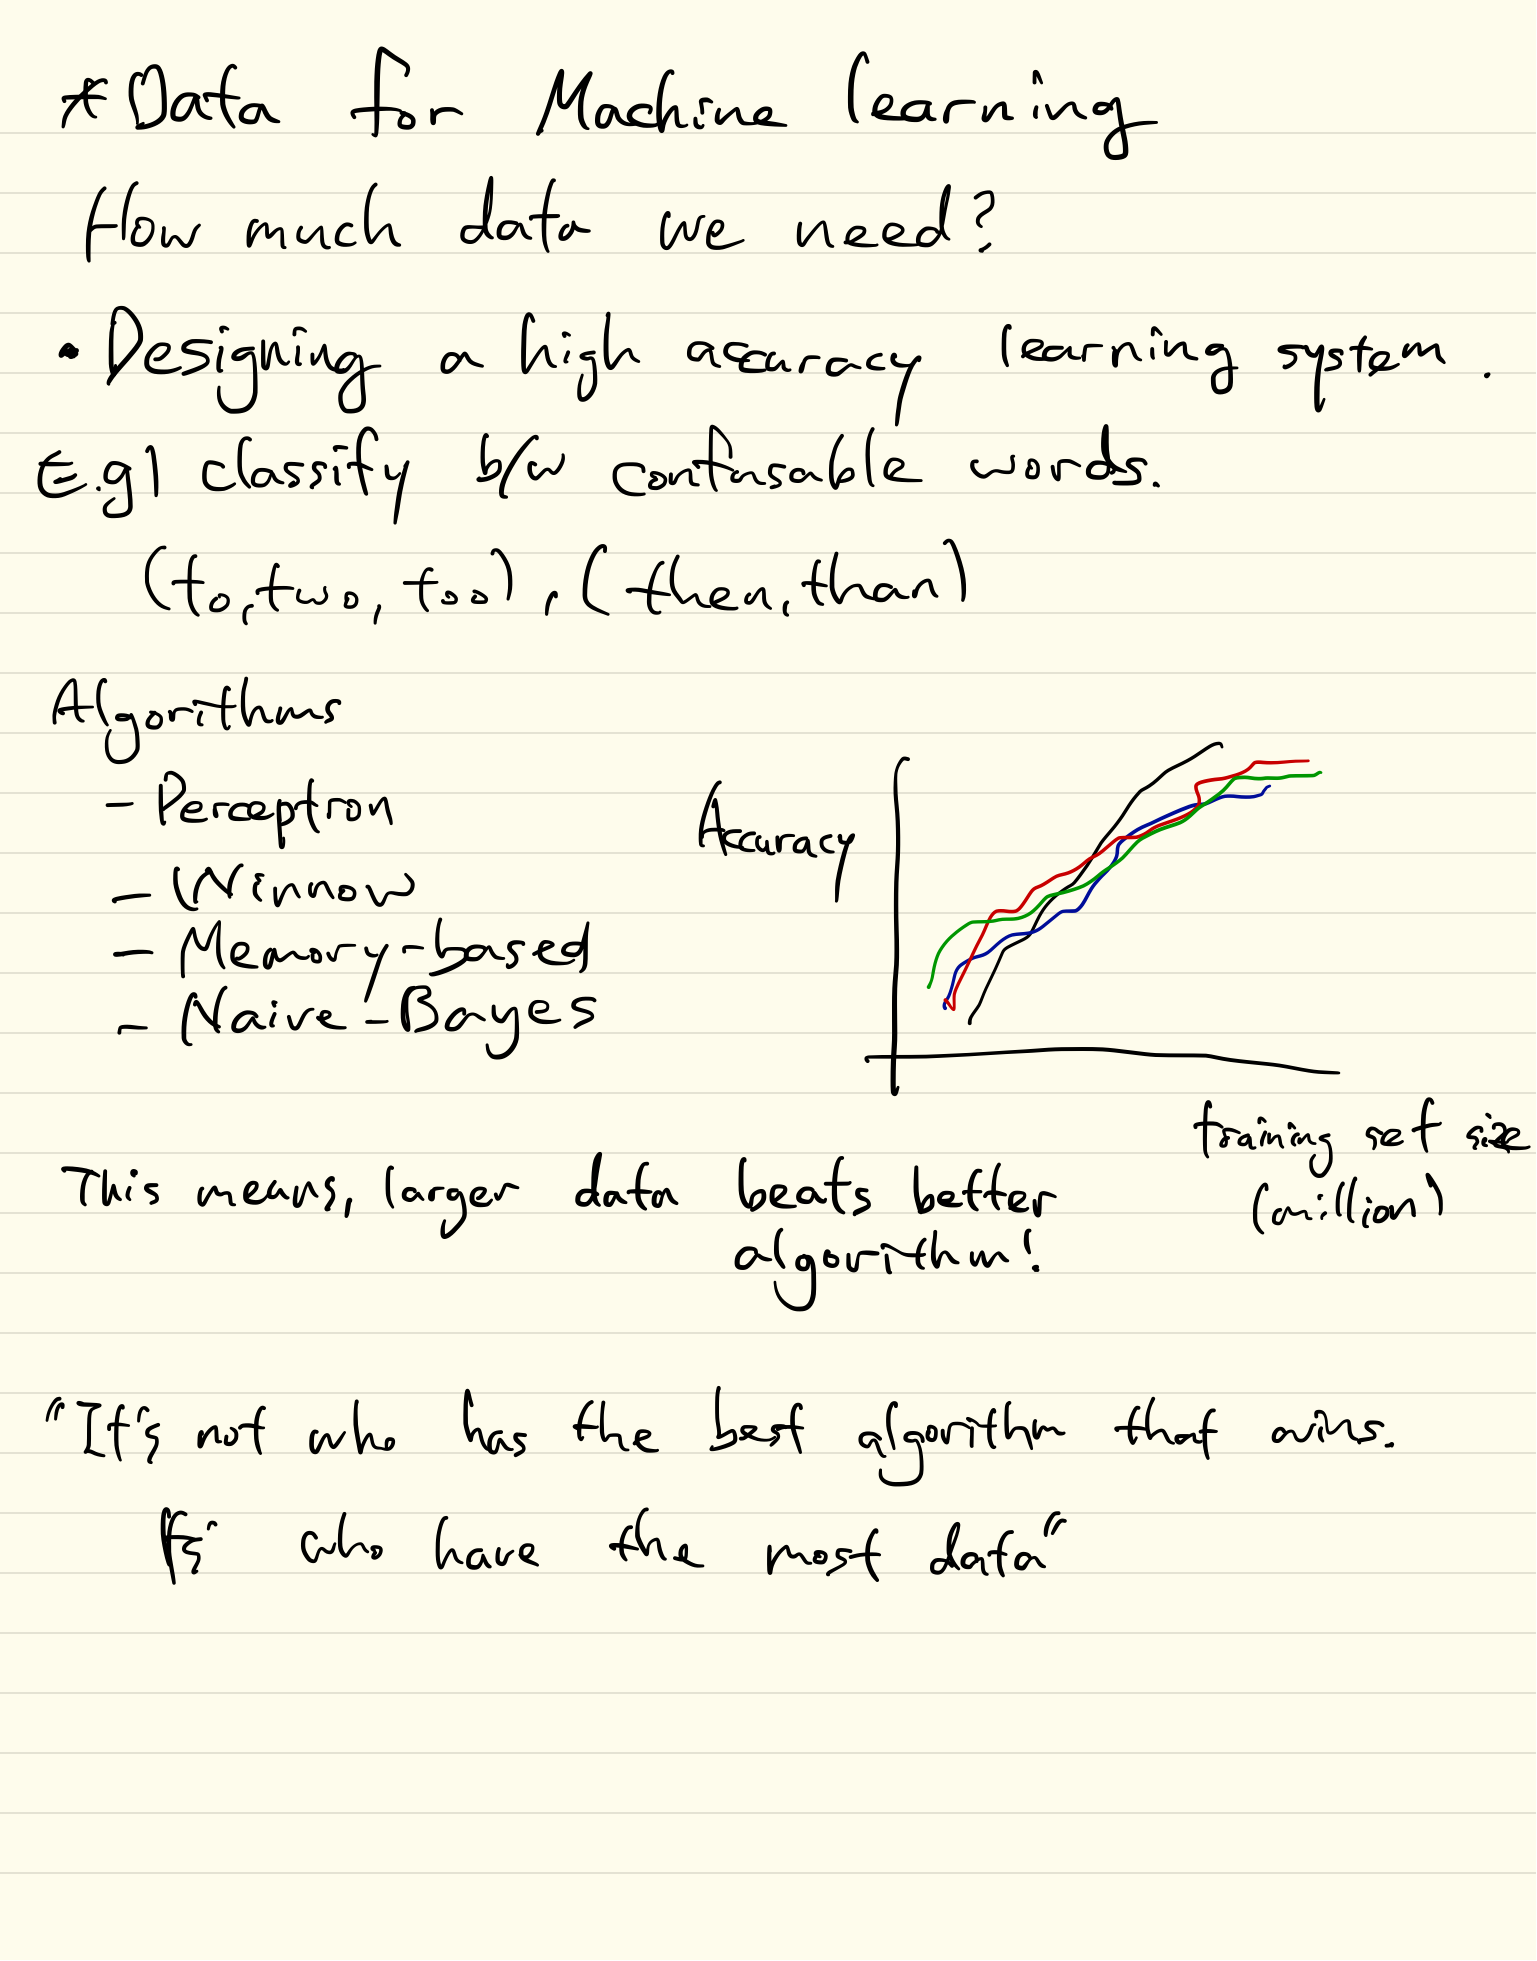 * Data for Machine learning
How much data we need?
• Designing a high accuracy learning system.
E.g) classify b/w confusable words.
(to, two, too), (then, than)
Algorithms
- Perceptron
- Winnow
- Memory-based
- Naive-Bayes
Accuracy
training set size
(million)
This means, larger data beats better
algorithm!
"It's not who has the best algorithm that wins.
It's who have the most data"